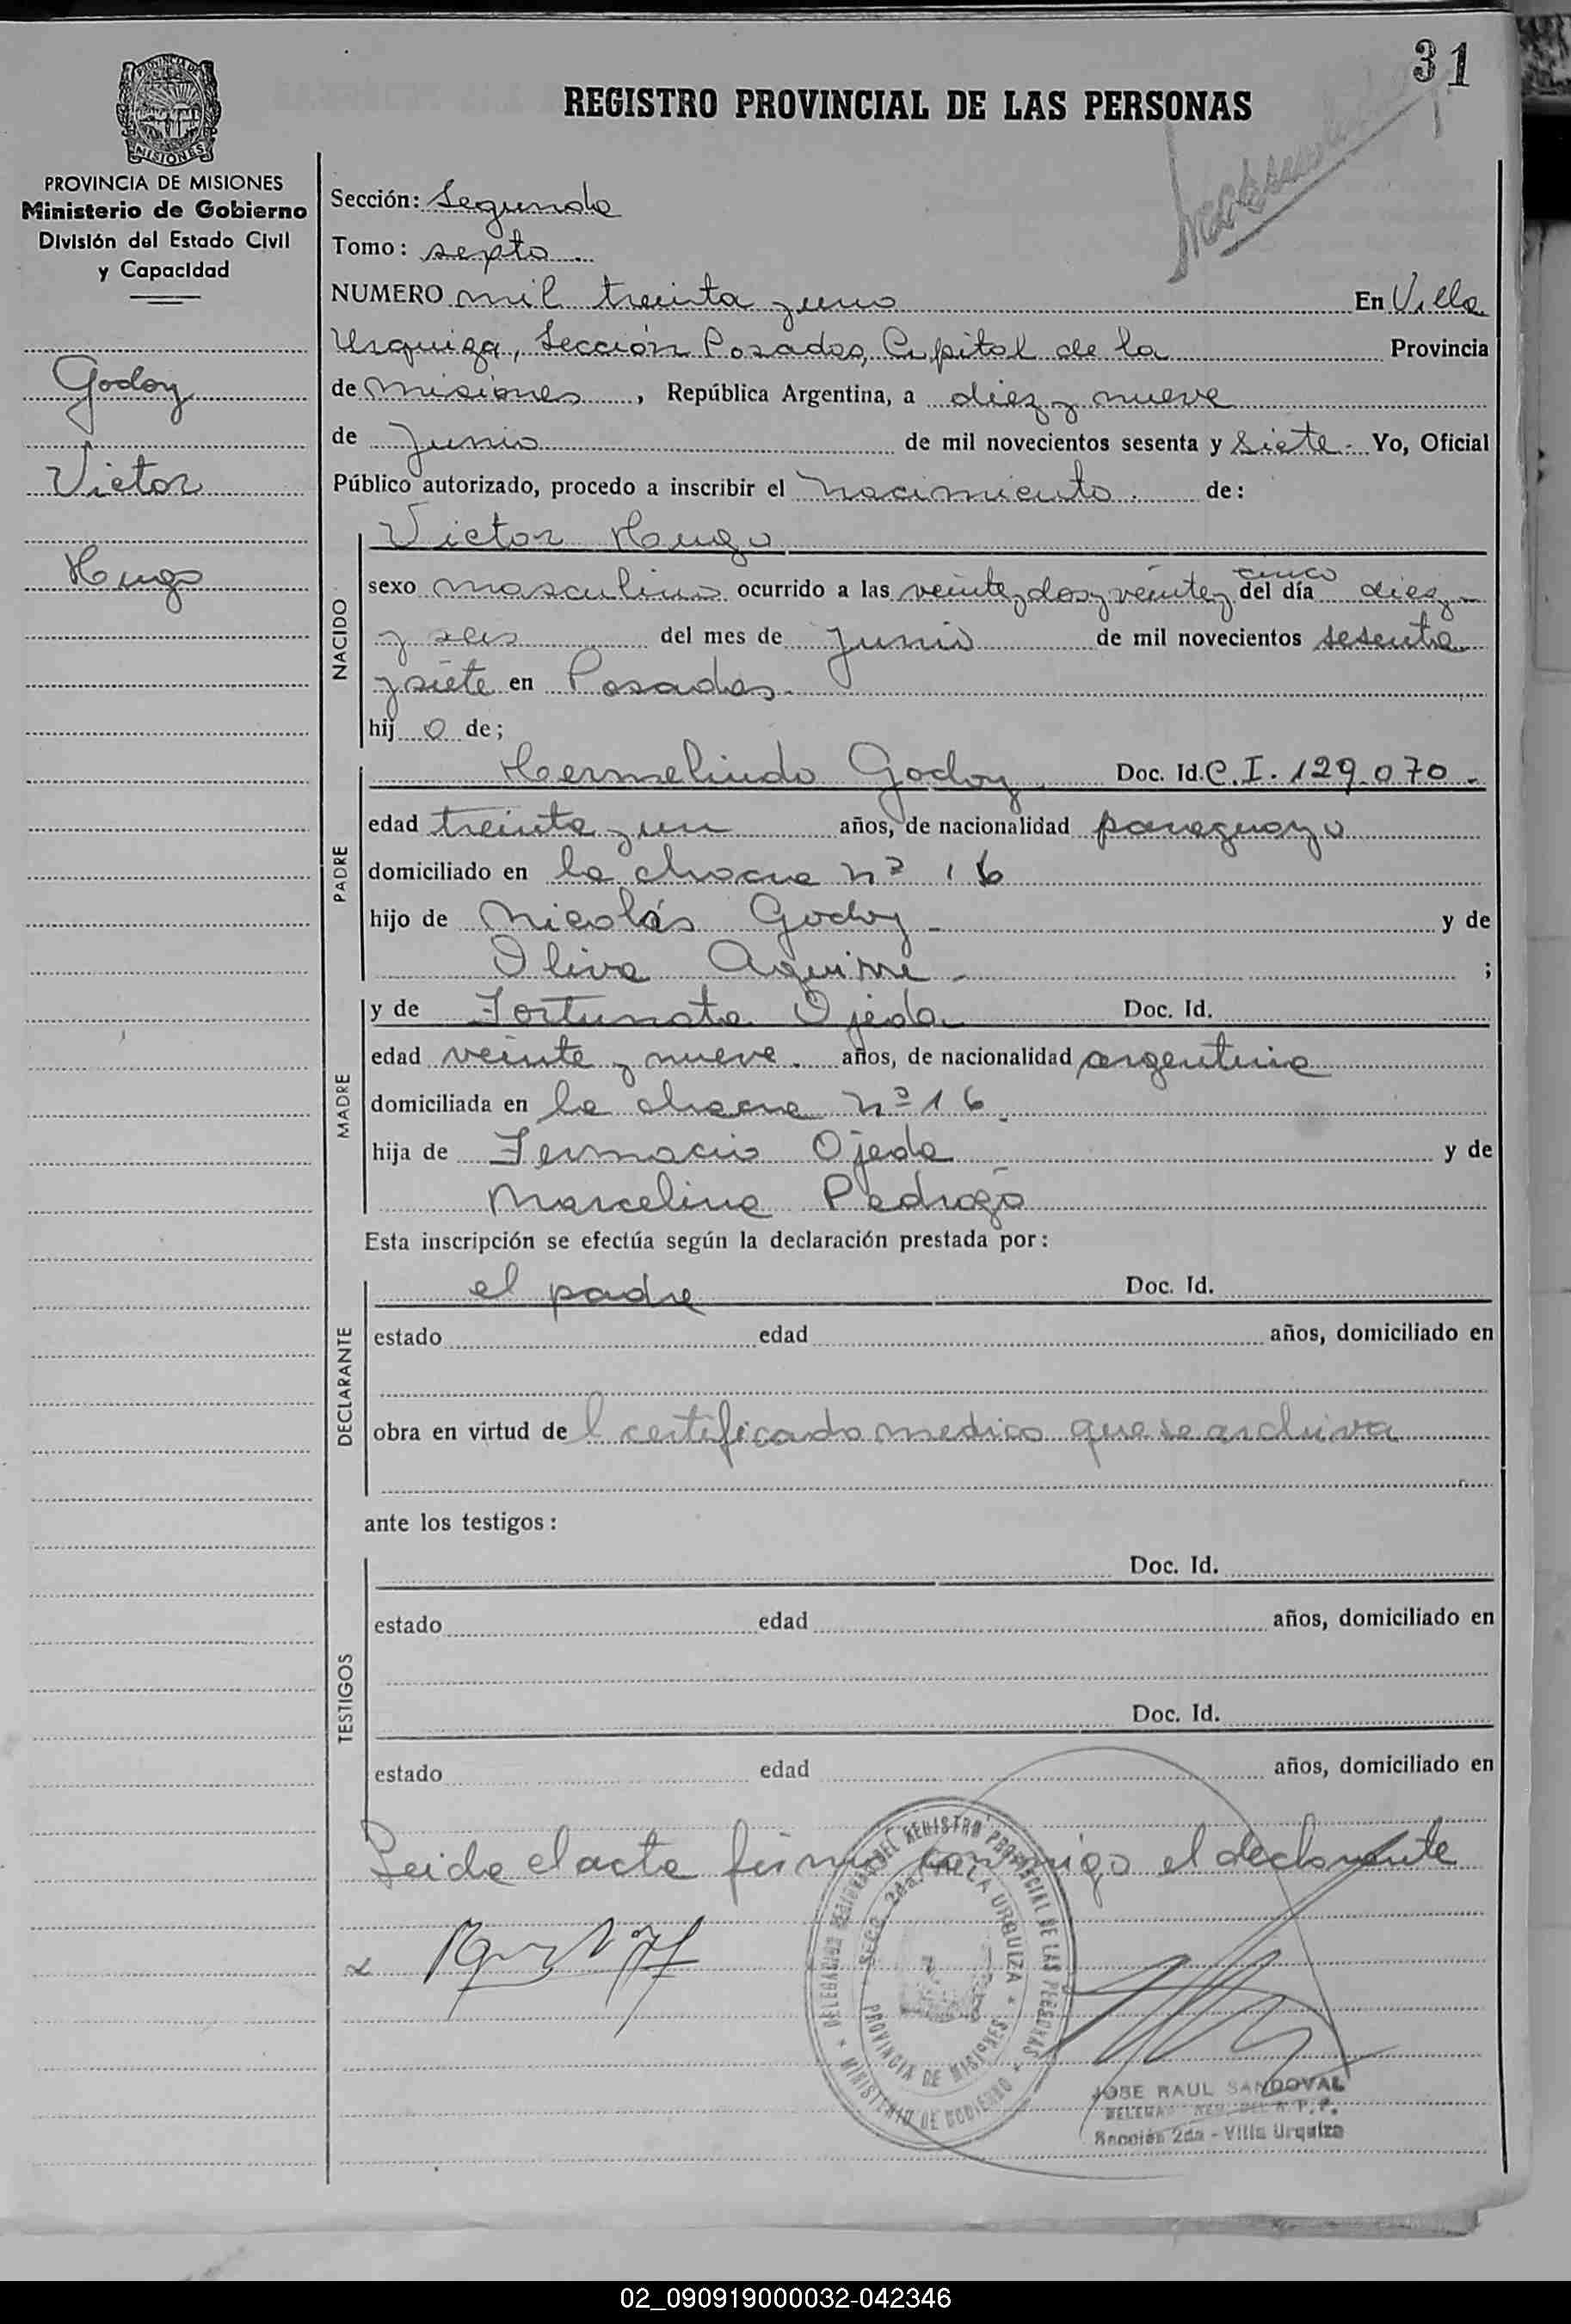 31
REGISTRO PROVINCIAL DE LAS PERSONAS
MISIONES
PROVINCIA DE MISIONES
Ministerio de Gobierno
División del Estado Civil
y Capacidad
Godoy
Victor
Hugo
Sección: Segunda
Tomo: sexto
NUMERO mil treinta y uno En Villa
Urquiza, Sección Posadas, Capital de la Provincia
de Misiones, República Argentina, a diez y nueve
de Junio de mil novecientos sesenta y siete.- Yo, Oficial
Público autorizado, procedo a inscribir el nacimiento. de:
NACIDO
Victor Hugo
sexo masculino ocurrido a las veinte y dos y veinte y cinco del día diez
y seis del mes de Junio de mil novecientos sesenta
y siete en Posadas.
hij o de;
PADRE
Hermelindo Godoy Doc. Id. C.I. 129.070.-
edad treinta y un años, de nacionalidad paraguayo
domiciliado en la chacra nº 16
hijo de Nicolás Godoy - y de
Oliva Aguirre - ;
MADRE
y de Fortunata Ojeda Doc. Id.
edad veinte y nueve. años, de nacionalidad argentina
domiciliada en la chacra nº 16.
hija de Ojeda y de
Marcelina Pedrozo
Esta inscripción se efectúa según la declaración prestada por:
DECLARANTE
el padre Doc. Id.
estado edad años, domiciliado en
obra en virtud de l certificado medico que se archiva
ante los testigos:
TESTIGOS
Doc. Id.
estado edad años, domiciliado en
Doc. Id.
estado edad años, domiciliado en
Leida el acta firma conmigo el declarante
DELEGACION REGIONAL DEL REGISTRO PROVINCIAL DE LAS PERSONAS * MINISTERIO DE GOBIERNO *
Secc. 2da. VILLA URQUIZA * PROVINCIA DE MISIONES
JOSE RAUL SANDOVAL
Sección 2da - Villa Urquiza
02_090919000032-042346